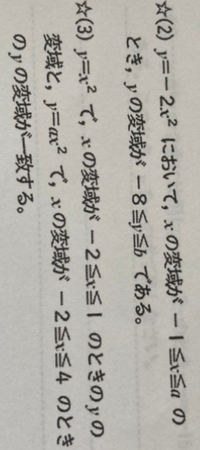 ☆(2) y=－2x² において，xの変域が －1≦x≦a の
とき，yの変域が －8≦y≦b である。
☆(3) y=x² で，xの変域が －2≦x≦1 のときのyの
変域と，y=ax² で，xの変域が －2≦x≦4 のとき
のyの変域が一致する。